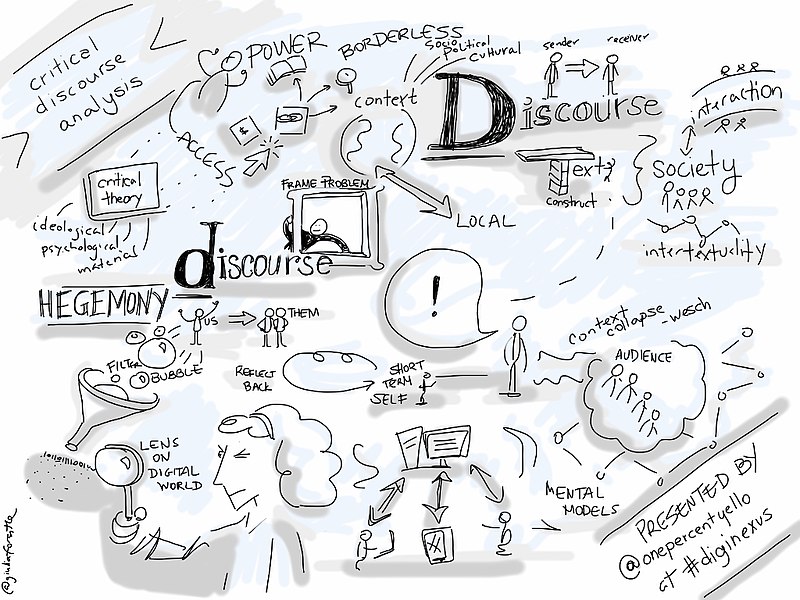 critical
discourse
analysis
POWER
BORDERLESS
socio
political
cultural
context
ACCESS
$
sender
receiver
Discourse
Text
construct
interaction
society
intertextuality
critical
theory
ideological
psychological
material
FRAME PROBLEM
LOCAL
discourse
HEGEMONY
US
THEM
!
FILTER
BUBBLE
REFLECT
BACK
SHORT
TERM
SELF
context
collapse - wesch
AUDIENCE
LENS
ON
DIGITAL
WORLD
MENTAL
MODELS
PRESENTED BY
@onepercentyello
at #diginexus
@giuliaforsythe